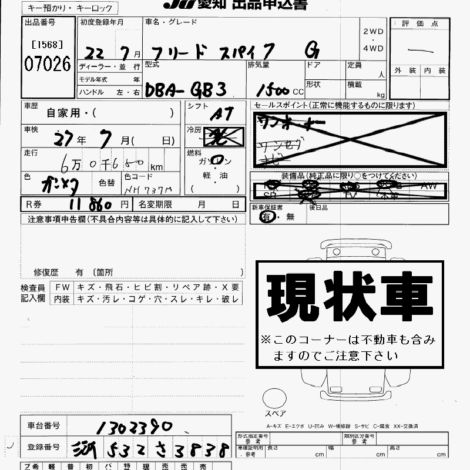 キー預かり・キーロック
JU 愛知 出品申込書
出品番号 初度登録年月 車名・グレード 2WD ・ 4WD 評価点
[1568] 07026 22年 7月 フリード スパイク G
ディーラー・並行 型式 排気量 ドア 定員 人 外装 内装
モデル年式 形状 積載
ハンドル 左・右 DBA-GB3 1500cc kg
車歴 自家用・( ) シフト AT セールスポイント(正常に機能するものに限ります)
車検 27年 7月( 日) 冷房 ワンオーナー
走行 6万0千650km 燃料 ガソリン・軽油 ワンセグ
色 ガンメタ 色替 カラーNo NH737M 装備品(純正品に限り○をつけてください)
( ) AW
R券 11860円 名変期限 月 日 新車保証書 有・無 後日品
注意事項申告欄(不具合内容等は具体的に記入して下さい)
修復歴 有(箇所 )
検査員記入欄 FW キズ・飛石・ヒビ割・リペア跡・X要
内装 キズ・汚レ・コゲ・穴・スレ・キレ・破レ
現状車
※このコーナーは不動車も含み
ますのでご注意下さい
スペア
A-キズ E-エクボ U-凹み W-補修跡 S-サビ C-腐食 XX-交換済
車台番号 1302390
登録番号 532 さ 3838
cm cm cm